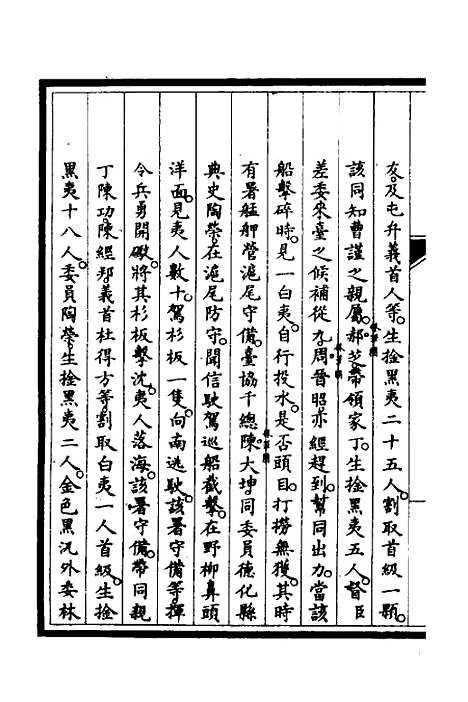 友及屯弁義首人等生擒黑夷二十五人割取首級一顆
該同知曹謹之親屬郝芝帶領家丁生擒黑夷五人督臣
差委來臺之候補從九周晉昭亦經趕到幫同出力當該
船擊碎時見一白夷自行投水是否頭目打撈無獲其時
有署艋舺營滬尾守備臺協千總陳大坤同委員德化縣
典史陶榮在滬尾防守聞信駛駕巡船截擊在野柳鼻頭
洋面見夷人數十駕杉板一隻向南逃駛該署守備等揮
令兵勇開礮將其杉板擊沈夷人落海該署守備帶同親
丁陳功陳經邦義首杜得方等割取白夷一人首級生擒
黑夷十八人委員陶榮生擒黑夷二人金色黑沉外委林